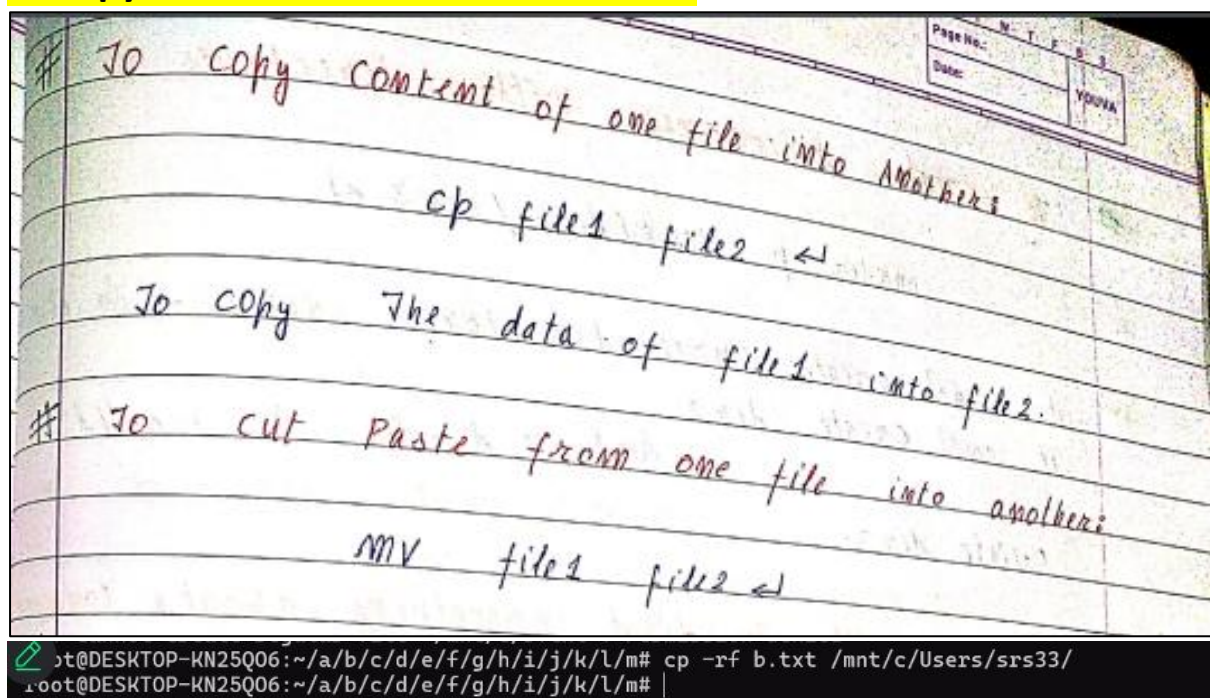 M T F S S
Page No.:
Date:
YOUVA
# TO copy content of one file into Another:
cp file1 file2 ↵
To copy The data of file1 into file2.
# To cut Paste from one file into another:
mv file1 file2 ↵
ot@DESKTOP-KN25QO6:~/a/b/c/d/e/f/g/h/i/j/k/l/m# cp -rf b.txt /mnt/c/Users/srs33/
root@DESKTOP-KN25QO6:~/a/b/c/d/e/f/g/h/i/j/k/l/m#